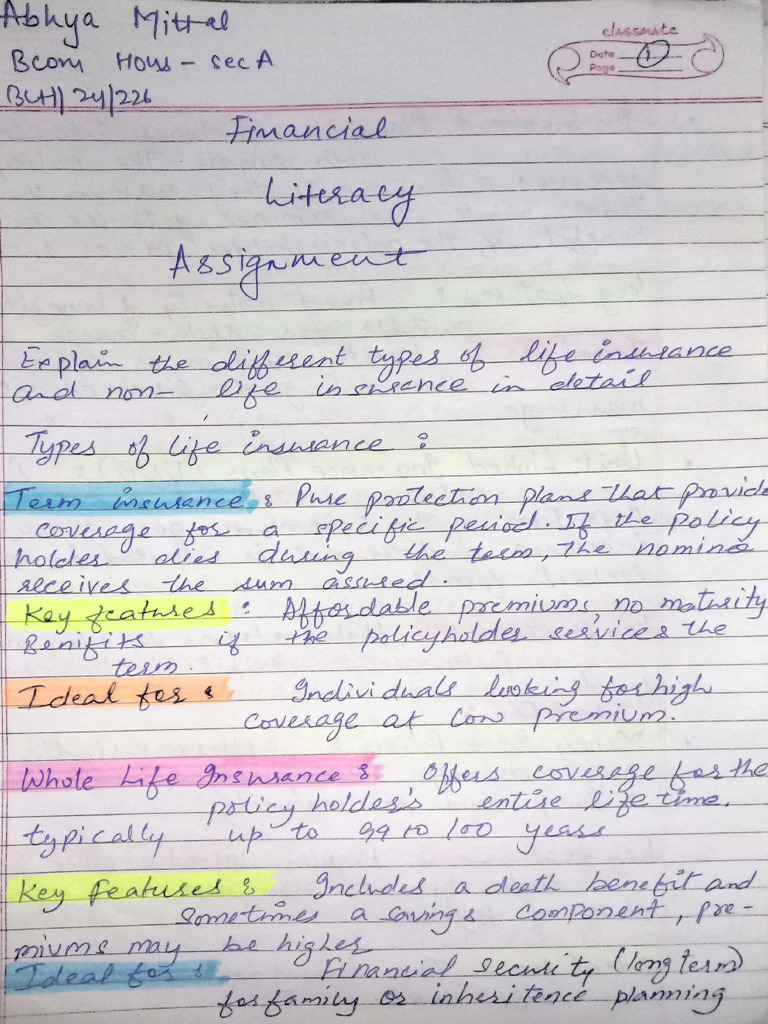 Abhya Mittal
Bcom Hons - sec A
BCH/24/226
classmate
Date
Page 1
Financial
Literacy
Assignment
Explain the different types of life insurance
and non- life insurance in detail
Types of life insurance :
Term insurance : Pure protection plans that provide
coverage for a specific period. If the policy
holder dies during the term, the nominee
receives the sum assured.
Key features : Affordable premiums, no maturity
Benifits if the policyholder services the
term.
Ideal for : Individuals looking for high
coverage at low premium.
Whole Life Insurance : Offers coverage for the
policy holder's entire life time,
typically up to 99 to 100 years
Key features : Includes a death benefit and
sometimes a savings component, pre-
miums may be higher
Ideal for : Financial security (long term)
for family or inheritence planning